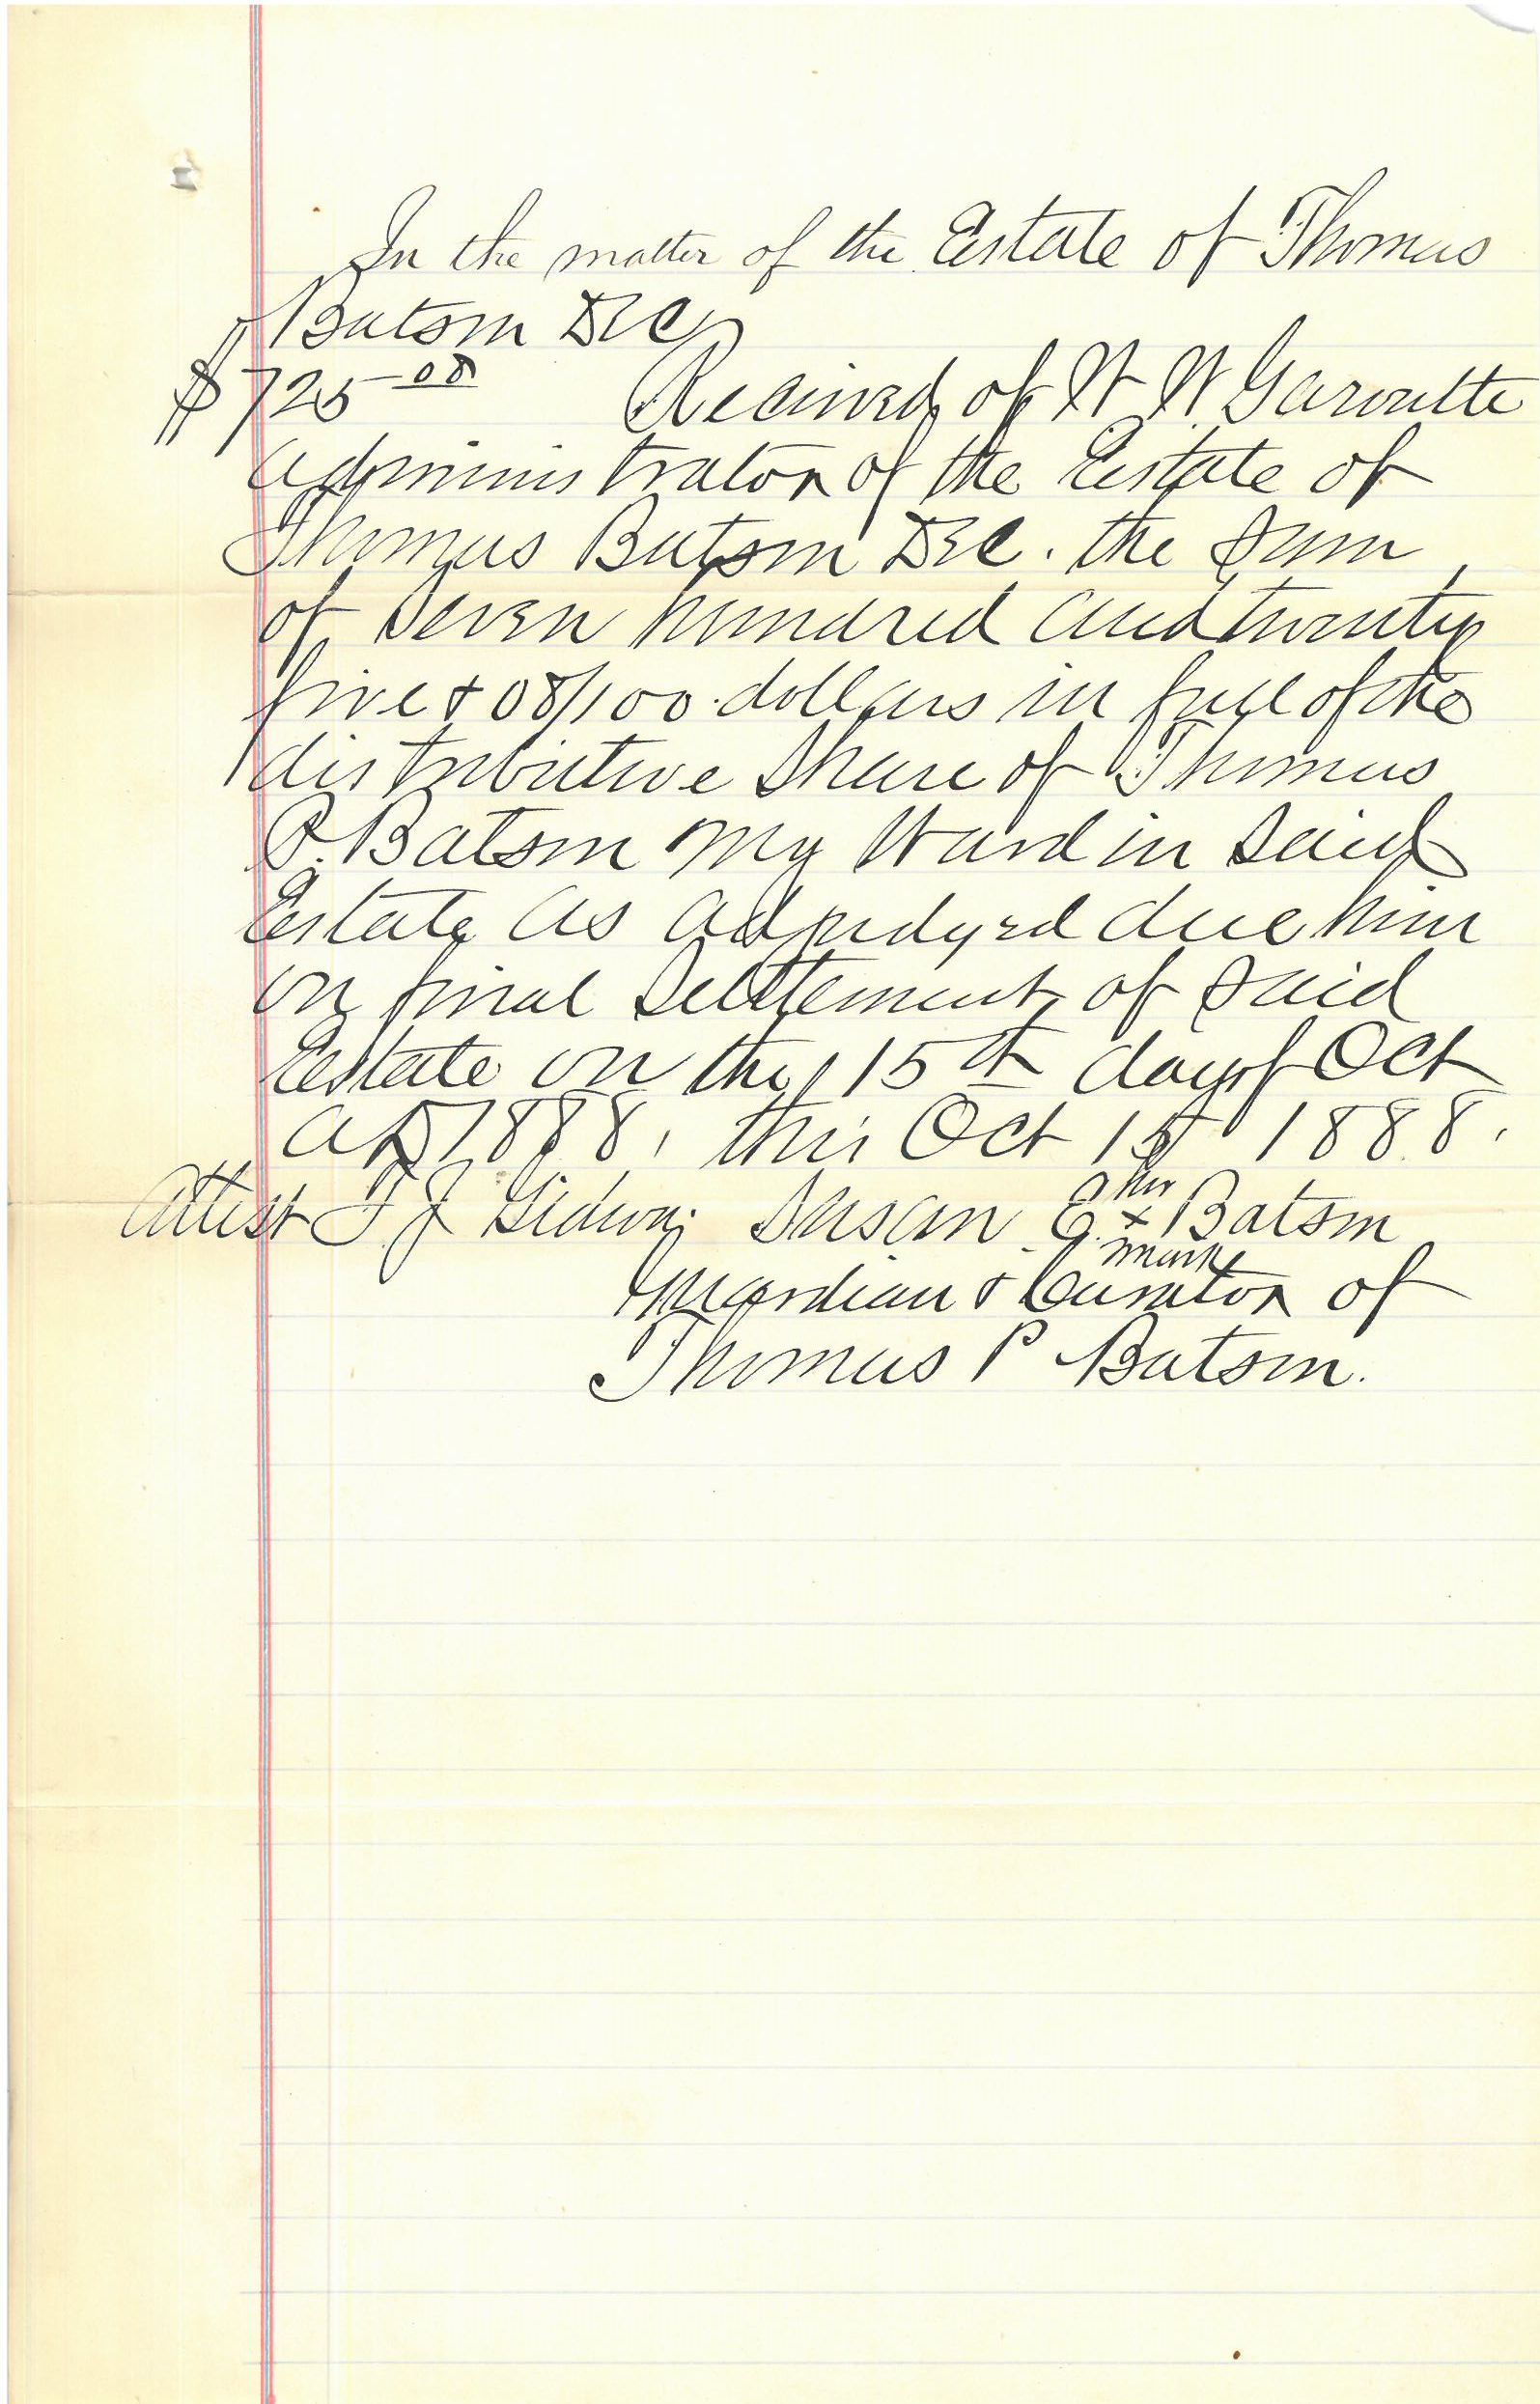 In the matter of the Estate of Thomas
Batson Dec
$725 08 Received of W W Garoutte
Administrator of the Estate of
Thomas Batson Dec. the Sum
of Seven hundred and twenty
five & 08/100 dollars in full of the
distributive Share of Thomas
P. Batson my Ward in Said
Estate as adjudged due him
on final Settlement of Said
Estate on the 15th day of Oct
AD 1888, this Oct 15 1888.
Attest T J Gideon. Susan E. her x mark Batson
Guardian & Curator of
Thomas P Batson.